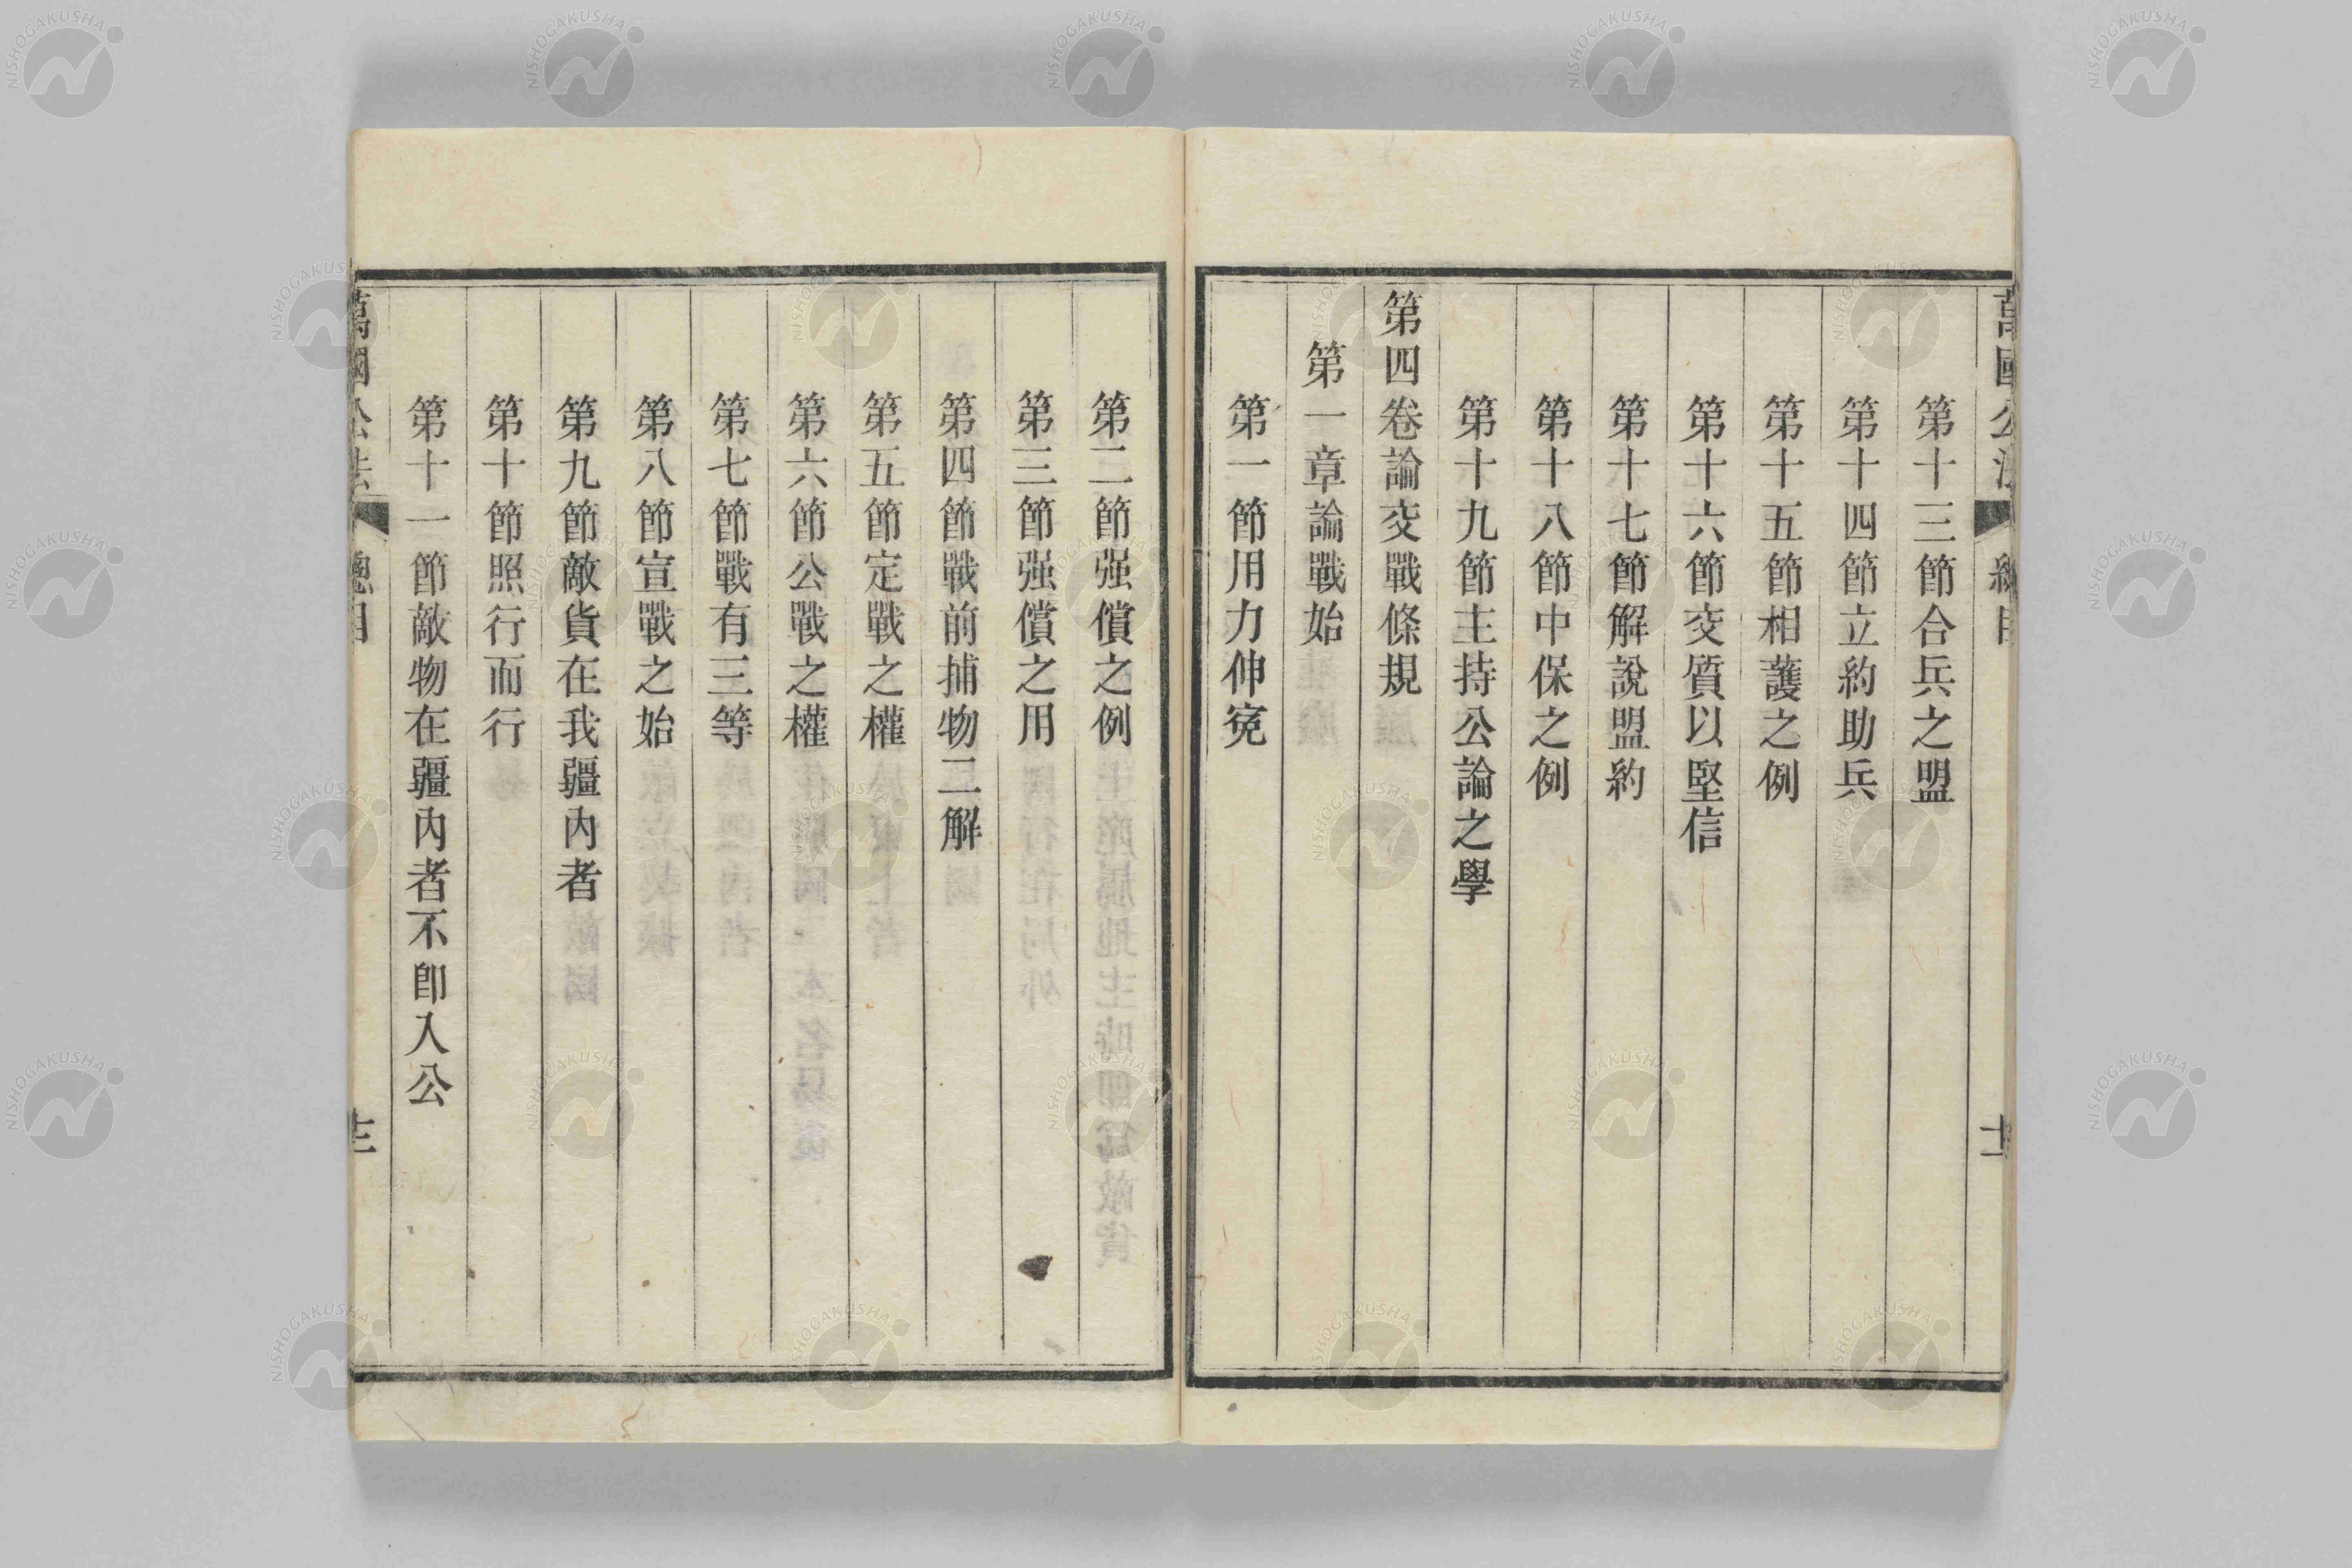 萬國公法 總目
第十三節合兵之盟
第十四節立約助兵
第十五節相護之例
第十六節交質以堅信
第十七節解說盟約
第十八節中保之例
第十九節主持公論之學
第四卷論交戰條規
第一章論戰始
第一節用力伸寃
第二節强償之例
第三節强償之用
第四節戰前捕物二解
第五節定戰之權
第六節公戰之權
第七節戰有三等
第八節宣戰之始
第九節敵貨在我疆內者
第十節照行而行
第十一節敵物在疆內者不卽入公
萬國公法 總目 十三
NISHOGAKUSHA